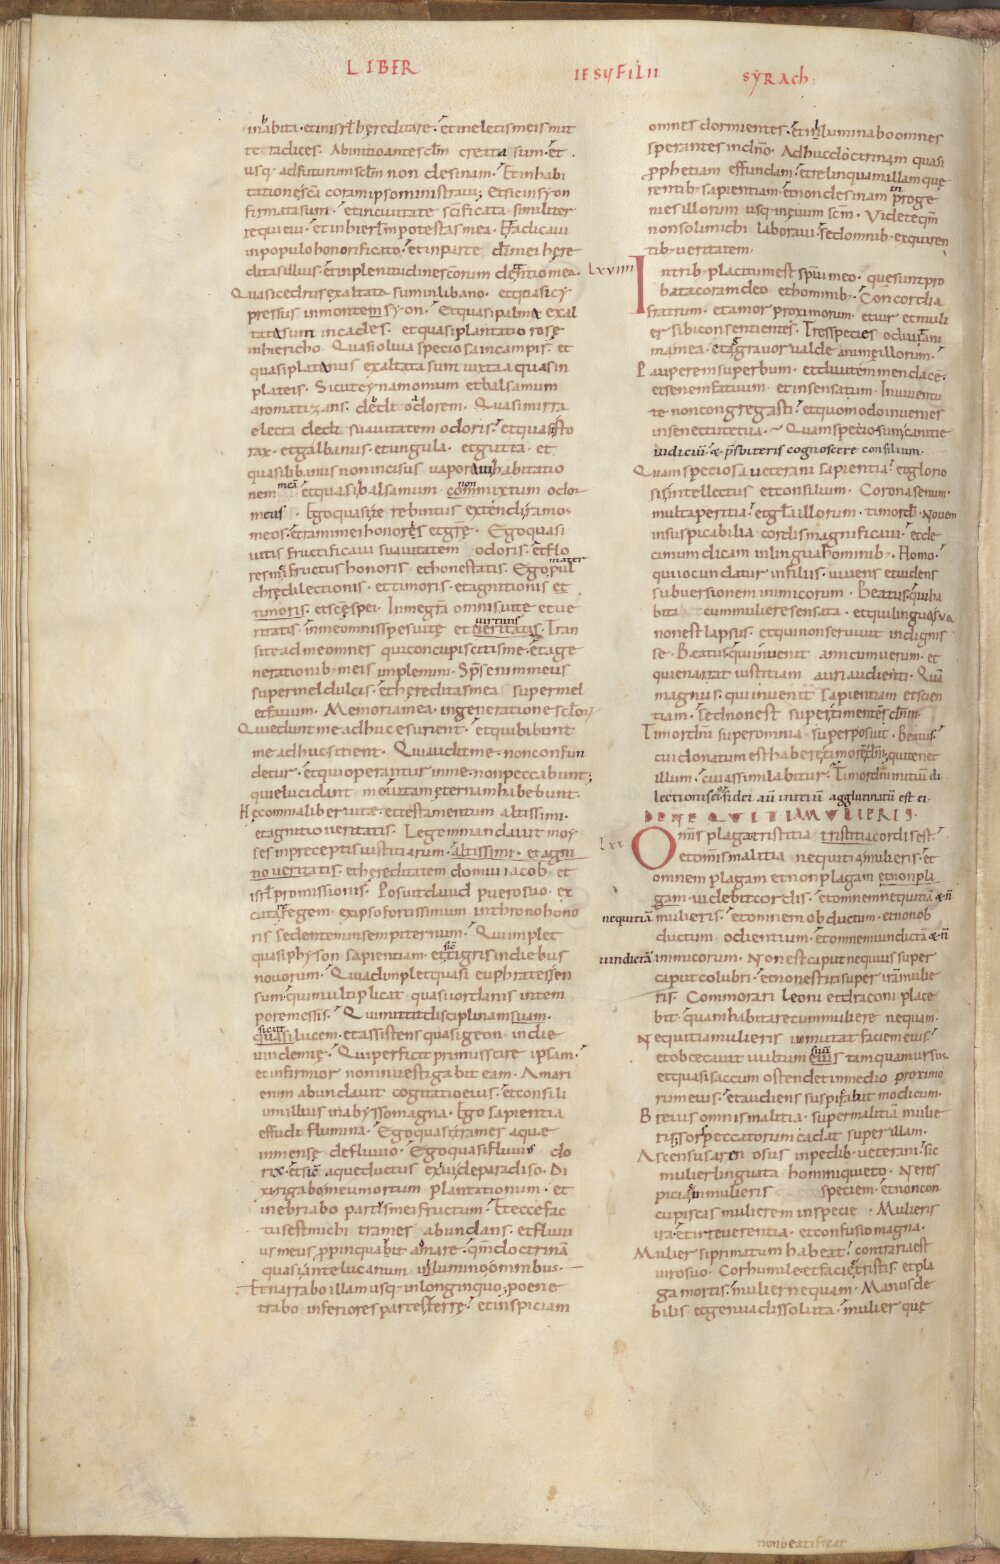 LIBER IESU FILII SYRACh.
inhabita. et in isrl hereditare. et in electis meis mit
te radices. Ab initio ante sclm creata sum. et
usq; ad futurum sclm non desinam. Et in habi
tatione sca coram ipso ministravi; Et sic in syon
firmata sum. et in civitate scificata similiter
requievi. et in hierlm potestas mea. Et radicavi
in populo honorificato. et in parte di mei here
ditas illius. et in plenitudine scorum detentio mea.
Quasi cedrus exaltata sum in libano. et quasi cy
pressus in montem syon. Et quasi palma exal
tata sum in cades. et quasi plantatio rose
in hiericho. Quasi oliva speciosa in campis. et
quasi platanus exaltata sum iuxta aquas in
plateis. Sicut cynamomum et balsamum
aromatizans. dedi odorem. Quasi mirra
electa dedi suavitatem odoris. et quasi sto
rax. et galbanus. et ungula. et gutta. et
quasi libanus non incisus vaporavi habitatio
nem meā et quasi balsamum non commixtum odor
meus. Ego quasi terebintus extendi ramos
meos. et rami mei honoris et grę. Ego quasi
vitis fructificavi suavitatem odoris. et flo
res mei fructus honoris et honestatis. Ego mater pul
chrę dilectionis. et timoris. et agnitionis et
timoris. et scę spei. In me gra omnis vite et ve
ritatis. in me omnis spes vitę et virtutis veritatis. Tran
site ad me omnes qui concupiscitis me. et a ge
nerationib; meis implemini. Sps enim meus
super mel dulcis. et hereditas mea super mel
et favum. Memoria mea in generatione sclor
Qui edunt me adhuc esurient. et qui bibunt
me adhuc sitient. Qui audit me. non confun
detur. et qui operantur in me. non peccabunt;
qui elucidant me vitam ęternam habebunt.
Hęc omnia liber vitae. et testamentum altissimi.
et agnitio veritatis. Legem mandavit moy
ses in preceptis iustitiarum. altissimi. et agni
tio veritatis. et hereditatem domui iacob et
isrl promissionis. Posuit david puero suo. ex
citare regem ex ipso fortissimum in throno hono
ris sedentem in sempiternum. Qui implet
quasi physon sapientiam. et sic tigris in diebus
novorum. Qui adimplet quasi euphrates sen
sum. qui multiplicat quasi iordanis in tem
pore messis. Qui mittit disciplinam suam.
sicut quasi lucem. et assistens quasi geon in die
vindemię. Qui perficit primus scire ipsam.
et infirmior non investigabit eam. A mari
enim abundavit cogitatio eius. et consili
um illius in abysso magna. Ego sapientia
effudi flumina. Ego quasi trames aque
inmense de fluvio. Ego quasi fluvius do
rix. et sic aqueductus exivi de paradiso. Di
xi rigabo meum ortum plantationum. et
inebriabo partis mei fructum. Et ecce fac
tus est michi trames abundans. et fluvi
us meus ppinquabit a mare. qm doctrinā
quasi ante lucanum illumino omnibus.
Et narrabo illam usq; in longinquo; pene
trabo inferiores partes terrę. et inspiciam
omnes dormientes. et illuminabo omnes
sperantes in dno. Adhuc doctrinam quasi
pphetiam effundam. et relinquam illam quę
rentib; sapientiam. et non desinam in proge
nies illorum usq; in evum scm. Videte qm
non soli michi laboravi. sed omnib; exquiren
tib; veritatem.
Lxviiii In trib; placitum est spui meo. que sunt pro
bata coram deo et hominib;. Concordia
fratrum. et amor proximorum. et vir et muli
er sibi consentientes. Tres species odivit ani
ma mea. et aggravor valde anime illorum.
Pauperem superbum. et divitem mendacē.
et senem fatuum et insensatum. In iuventu
te non congregasti. et quomodo invenies
in senectute tua. Quam speciosum canitie
iudiciū. & psbiteris cognoscere consilium.
Quam speciosa veterani sapientia. et glorio
sis intellectus et consilium. Corona senum.
multa peritia. et gla illorum. timor di. Novem
insuspicabilia cordis magnificavi. et de
cimum dicam in lingua hominib;. Homo.
qui iocundatur in filiis. vivens et videns
subversionem inimicorum. Beatus. qui ha
bitat cum muliere sensata. et qui lingua sua
non est lapsus. et qui non servivit indignis
se. Beatus. qui invenit amicum verum. et
qui enarrat iustitiam auri audienti. Quā
magnus. qui invenit sapientiam et scien
tiam. sed non est super timentem dnm.
Timor dni super omnia superposuit. Beatus.
cui donatum est habere timorē dni; qui tenet
illum. cui assimilabitur. Timor dni initiū di
lectionis ei. fidei aū initiū agglutinatū est ei.
DE NEQUITIA MULIERIS.
Lxx Omnis plaga tristitia tristitia cordis est.
et omnis malitia nequitia mulieris. et
omnem plagam et non plagam et non pla
gam videbit cordis. et omnem nequitiā & ñ
nequitiā mulieris. et omnem obductum. et non ob
ductum odientium. et omnem vindictā & ñ
vindictā inimicorum. Non est caput nequius super
caput colubri. et non est ira super irā mulie
ris. Commorari leoni et draconi place
bit. quam habitare cum muliere nequam.
Nequitia mulieris inmutat faciem eius.
et obcecavit vultum suū eius tamquam ursus.
et quasi saccum ostendet in medio proximo
rum eius. et audiens suspirabit modicum.
Brevis omnis malitia. super malitiā mulie
ris; sors peccatorum cadat super illam.
Ascensus arenosus in pedib; veterani. sic
mulier linguata homini quieto. Ne res
picias in mulieris speciem. et non con
cupiscas mulierem in specie. Mulieris
ira. et irreverentia. et confusio magna.
Mulier si primatum habeat. contraria est
viro suo. Cor humile. et facies tristis. et pla
ga mortis. mulier nequam. Manus de
biles et genua dissoluta. mulier que
non beatificat